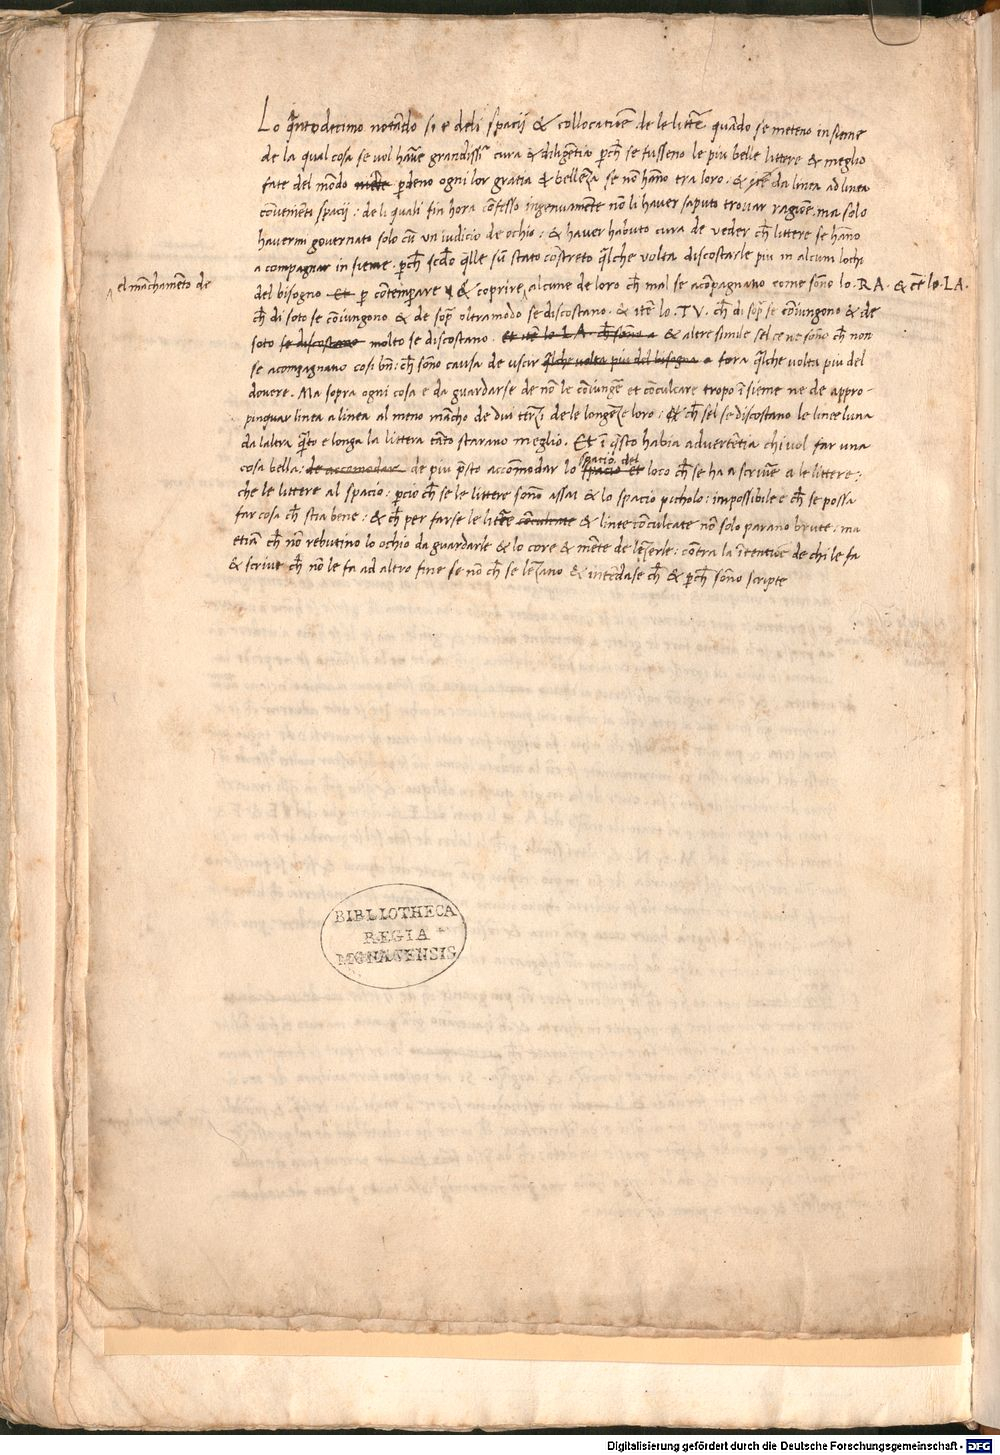 Lo q̃ntodecimo notãdo si e deli spacij & collocatiõe de le littẽ quãdo se meteno insieme
de la qual cosa se vol haũe grandissa cura & diligẽtia p̱ch̃ se fusseno le piu belle littere & meglio
fate del mõdo p̱deno ogni lor gratia & bellẽza se nõ hãno tra loro: & itẽ da linea ad linea
cõveniẽti spacij: deli quali fin hora cõfesso ingenuamẽte nõ li haver saputo trovar ragiõe. ma solo
havermi governato solo cũ un iudicio de ochio: & haver habuto cura de veder ch̃ littere se hãno
a compagnar insieme: p̱ch̃ scd̃o q̃lle sũ stato cõstreto q̃lche volta discostarle piu in alcuni lochi
^ el mãchamẽto de
del bisogno Et p̱ cõtemp̱are & coprire ^ alcune de loro ch̃ mal se acõpagnano come sõno lo .RA. & cẽ lo .LA.
ch̃ di soto se cõiungono & de sop̃ oltramodo se discostano. & itẽ lo .TV. ch̃ di sop̃ se cõiungono & de
soto se discostano molto se discostano. et itẽ lo LA ch̃ sõno a & altre simile sel ce ne sõno ch̃ non
se acompagnano cosi bñ: ch̃ sõno causa de uscir q̃lche volta piu del bisogno a fora q̃lche volta piu del
dovere. Ma sopra ogni cosa e da guardarse de nõ le cõiungẽ et cõculcare tropo ĩsieme ne de appro-
pinquar linea a linea al meno mãcho de dui terzi de le longeze loro: & ch̃ sel se discostano le linee luna
da laltra q̃to e longa la littera tãto starano meglio. Et ĩ q̃sto habia advertẽtia chi vol far una
spacio del
cosa bella: de accomodare de piu p̃sto accõmodar lo spacio et loco ch̃ se ha a scriuẽ a le littere:
che le littere al spacio: p̱cio ch̃ se le littere sõno assai & lo spacio picholo: impossibile e ch̃ se possa
far cosa ch̃ stia bene: & ch̃ per farse le litẽe cõculcate & linee cõculcate nõ solo parano brute: ma
etiam ch̃ nõ rebutino lo ochio da guardarle & lo core & mẽte de lezerle: cõtra la ĩtentiõe de chi le fa
& scrive ch̃ nõ le fa ad altro fine se nõ ch̃ se lezano & intẽdase ch̃ & p̱ch̃ sõno scripte
BIBLIOTHECA
REGIA
MONACENSIS
Digitalisierung gefördert durch die Deutsche Forschungsgemeinschaft - DFG